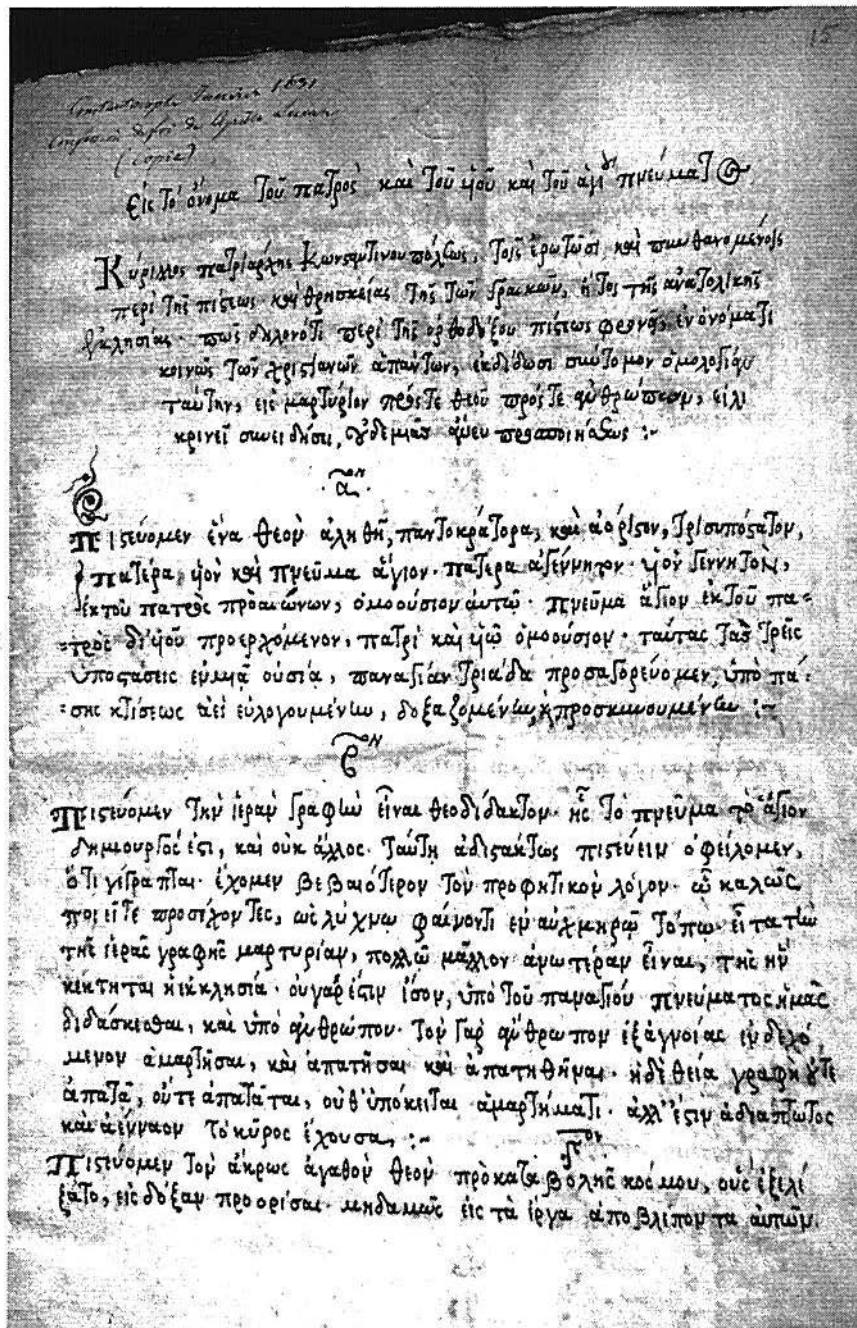 15
Constantinople Janvier 1631
Confession de foi de Cyrille Lucar
(copie)
Εἰς τὸ ὄνομα τοῦ πατρὸς καὶ τοῦ ὑιοῦ καὶ τοῦ ἁγίου πνεύματος
Κύριλλος πατριάρχης Κωνσταντινουπόλεως, τοῖς ἐρωτῶσι, καὶ πυνθανομένοις
περὶ τῆς πίστεως καὶ θρησκείας τῆς τῶν Γραικῶν, ἤτοι τῆς ἀνατολικῆς
ἐκκλησίας· πῶς δηλονότι περὶ τῆς ορθοδόξου πίστεως φρονεῖ, ἐν ὀνόματι
κοινῶς τῶν χριστιανῶν ἁπάντων, ἐκδίδωσι σύντομον ὁμολογίαν
ταύτην, εἰς μαρτύριον πρός τε θεοῦ πρός τε ἀνθρώπων, εἰλι
κρινεῖ συνειδήσει, οὐδεμιᾶς ἄνευ προσποιήσεως :~
α ον
πιστεύομεν ἕνα θεὸν ἀληθῆ, παντοκράτορα, καὶ ἀόριστον, τρισυπόστατον,
πατέρα, ὑιὸν καὶ πνεῦμα ἅγιον· πατέρα ἀγέννητον· ὑιὸν γεννητὸν,
ἐκ τοῦ πατρὸς πρὸ αιώνων, ὁμοούσιον αυτῷ· πνεῦμα ἅγιον ἐκ τοῦ πα-
-τρὸς δι' ὑιοῦ προερχόμενον, πατρὶ καὶ ὑιῷ ὁμοούσιον· ταύτας τὰς τρεῖς
ὑποστάσεις ἐν μιᾷ ουσίᾳ, παναγίαν τριάδα προσαγορεύομεν, ὑπὸ πά-
-σης κτίσεως ἀεὶ εὐλογουμένην, δοξαζομένην, καὶ προσκυνουμένην :~
β ον
Πιστεύομεν τὴν ἱερὰν γραφὴν εἶναι θεοδίδακτον· ἧς τὸ πνεῦμα τὸ ἅγιον
δημιουργός ἐστι, καὶ ουκ ἄλλος. ταύτῃ ἀδιστάκτως πιστεύειν οφείλομεν,
ὅτι γέγραπται· ἔχομεν βεβαιότερον τὸν προφητικὸν λόγον· ᾧ καλῶς
ποιεῖτε προσέχοντες, ὡς λύχνῳ φαίνοντι ἐν αὐχμηρῷ τόπῳ· εἶτα τὴν
τῆς ἱερᾶς γραφῆς μαρτυρίαν, πολλῷ μᾶλλον ἀνωτέραν εἶναι, τῆς ἣν
κέκτηται ἡ ἐκκλησία· ου γάρ ἐστιν ἴσον, ὑπὸ τοῦ παναγίου πνεύματος ἡμᾶς
διδάσκεσθαι, καὶ ὑπὸ ἀνθρώπου· τὸν γὰρ ἄνθρωπον ἐξ ἀγνοίας ἐνδεχό
μενον ἁμαρτῆσαι, καὶ ἀπατῆσαι καὶ ἀπατηθῆναι· ἡ δὲ θεία γραφὴ οὔτε
ἀπατᾷ, οὔτε ἀπατᾶται, ουθ' ὑπόκειται ἁμαρτήματι· ἀλλ' ἔστιν ἀδιάπτωτος
καὶ ἀένναον τὸ κῦρος ἔχουσα, :~
γ ον
Πιστεύομεν τὸν ἄκρως ἀγαθὸν θεὸν πρὸ καταβολῆς κόσμου, οὓς ἐξελέ
ξατο, εἰς δόξαν προορίσαι· μηδαμῶς εἰς τὰ ἔργα ἀποβλέποντα αὐτῶν.